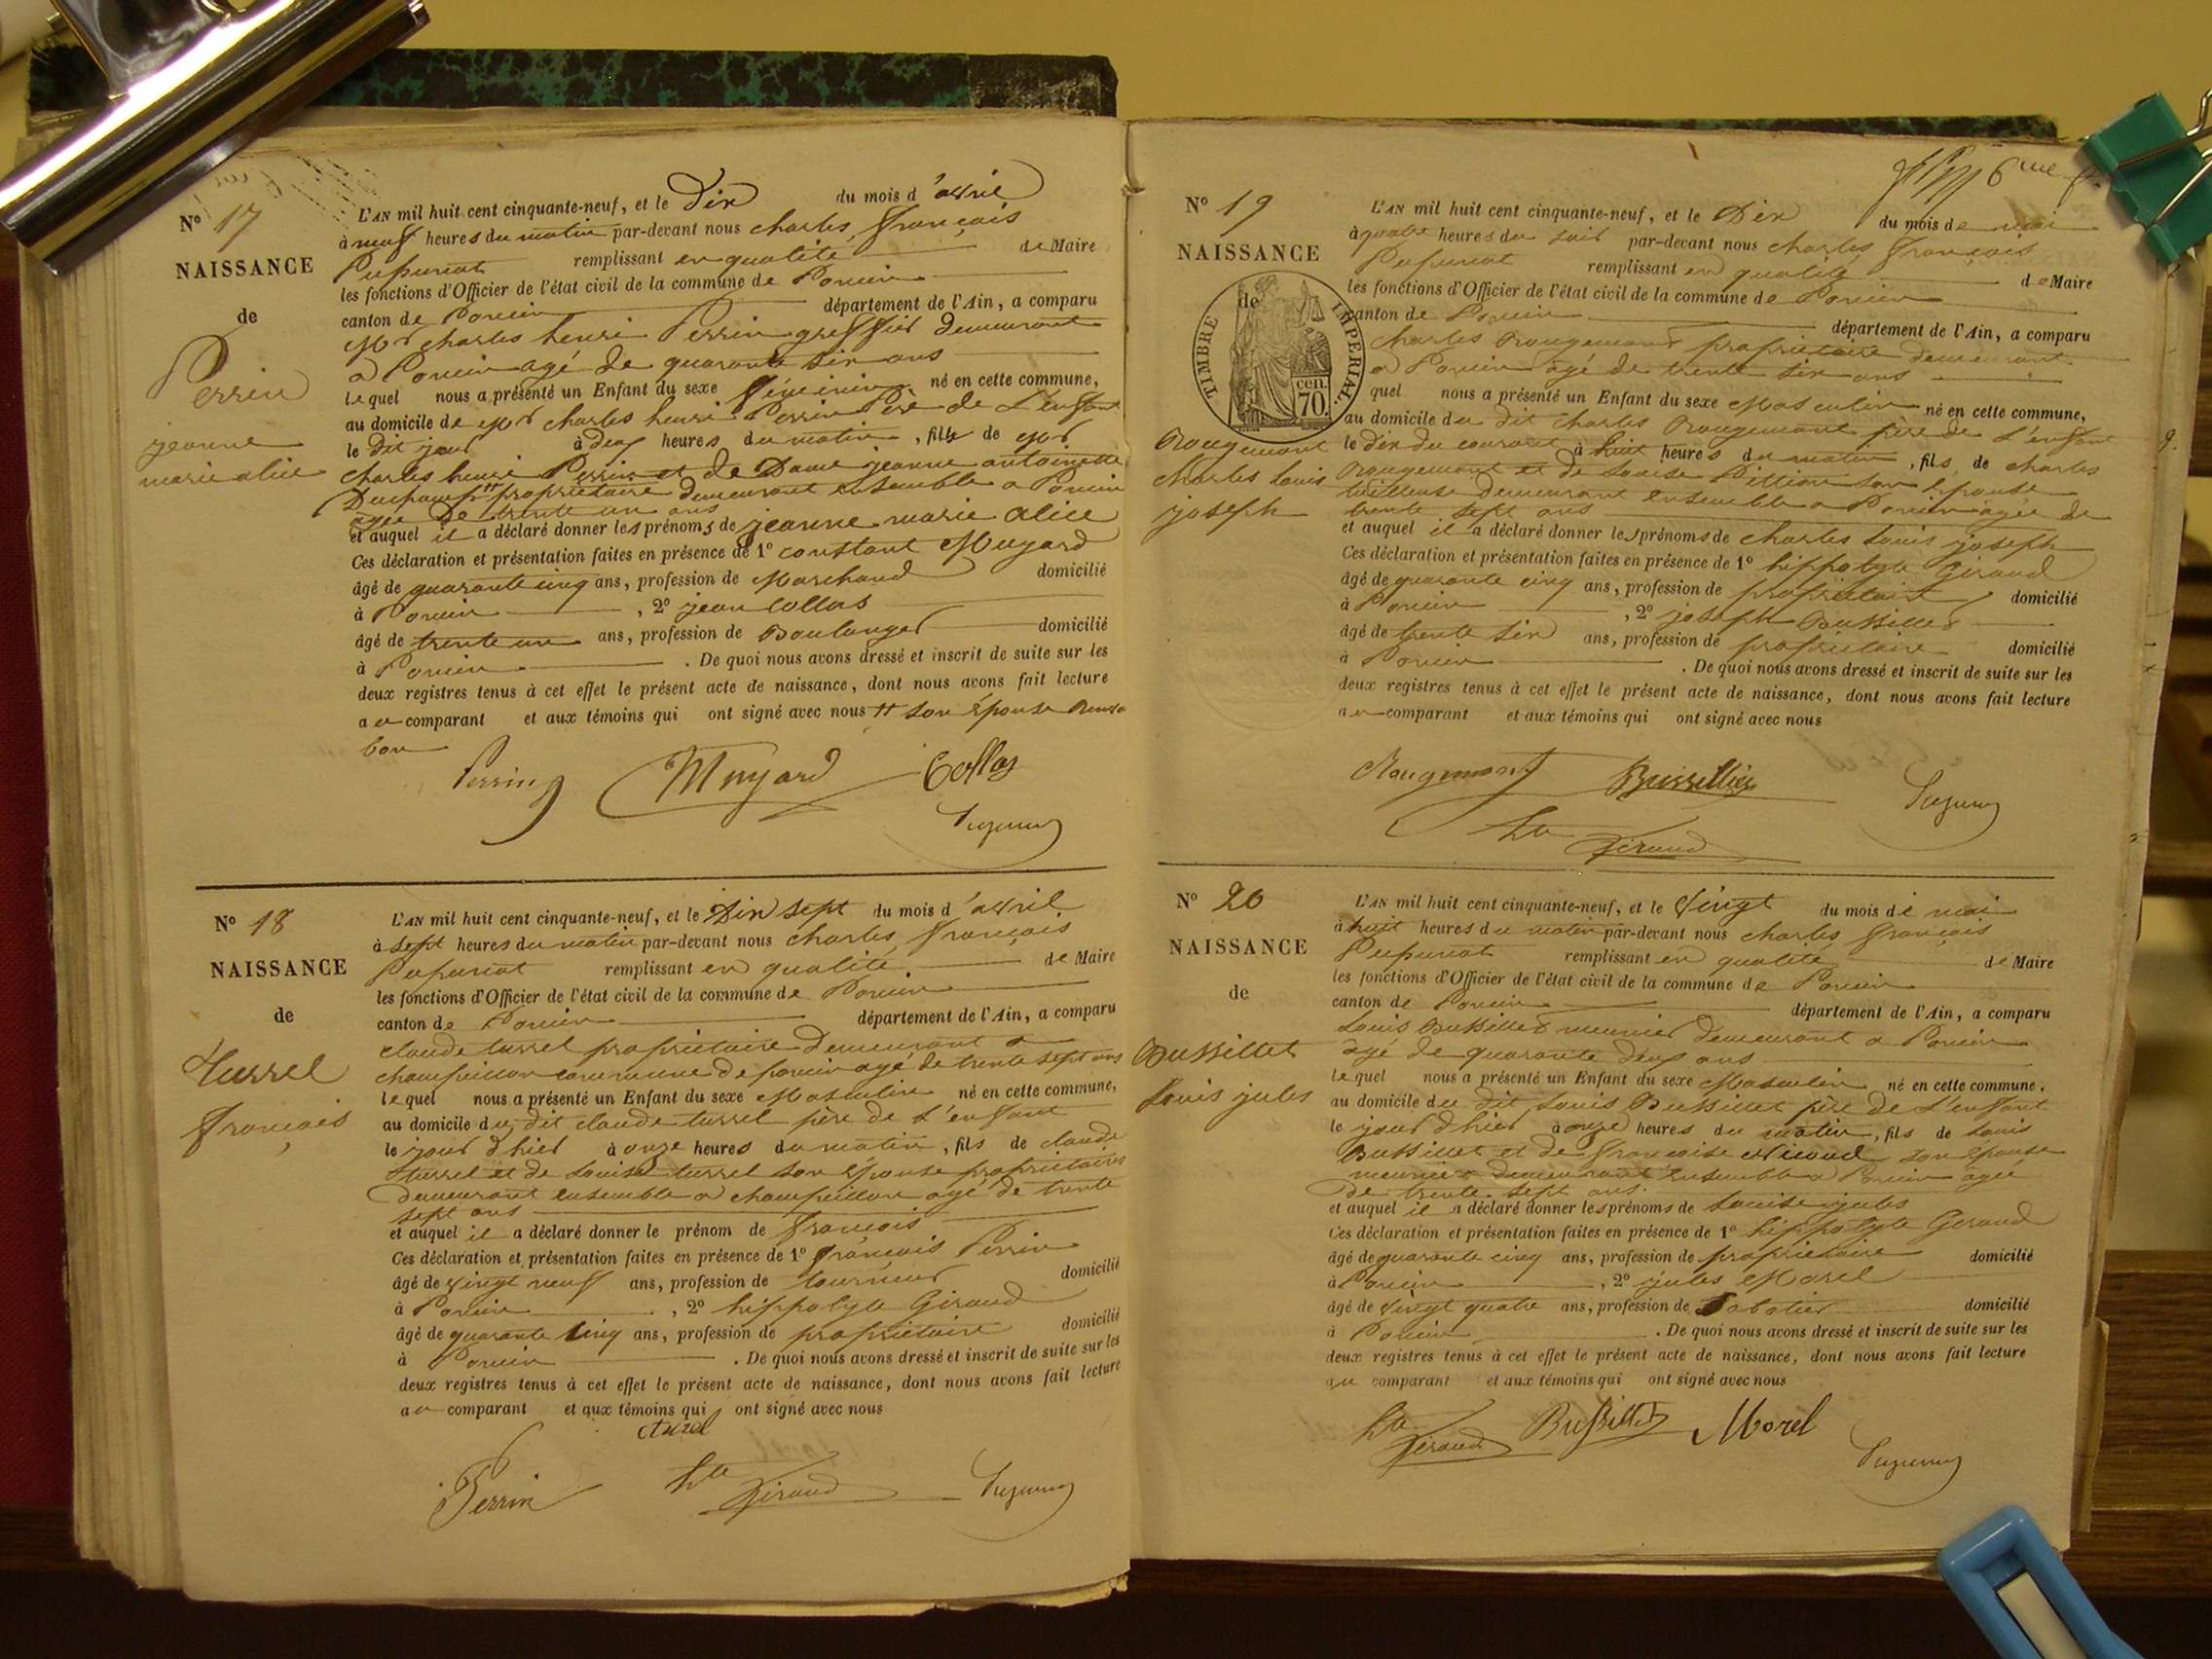 N° 17
NAISSANCE
de
Perrin
jeanne
marie alice
L'AN mil huit cent cinquante-neuf, et le Dix du mois d'avril
à neuf heures du matin par-devant nous charles, françois
Pupuniat remplissant en qualité de Maire
les fonctions d'Officier de l'état civil de la commune de Poncin
canton de Poncin département de l'Ain, a comparu
Mr charles henri Perrin greffier demeurant
a Poncin agé de quarante six ans
lequel nous a présenté un Enfant du sexe féminin né en cette commune,
au domicile de Mr charles henri Perrin Père de L'enfant
le dit jour à deux heures du matin, fille de Mr
charles henri Perrin et de Dame jeanne antoinette
propriétaire demeurant ensemble a Poncin
agée De trente un ans
et auquel il a déclaré donner les prénoms de jeanne marie alice
Ces déclaration et présentation faites en présence de 1° constant Muyard
âgé de quarante cinq ans, profession de Marchand domicilié
à Poncin, 2° jean Collas
âgé de trente un ans, profession de Boulanger domicilié
à Poncin. De quoi nous avons dressé et inscrit de suite sur les
deux registres tenus à cet effet le présent acte de naissance, dont nous avons fait lecture
au comparant et aux témoins qui ont signé avec nous # son épouse Renvoi
bon
Perrin Muyard Collas
N° 18
NAISSANCE
de
turrel
françois
L'AN mil huit cent cinquante-neuf, et le Dix sept du mois d'avril
à sept heures du matin par-devant nous charles, françois
Pupuniat remplissant en qualité de Maire
les fonctions d'Officier de l'état civil de la commune de Poncin
canton de Poncin département de l'Ain, a comparu
claude turrel propriétaire Demeurant a
champeillon commune de poncin agé de trente sept ans
lequel nous a présenté un Enfant du sexe Masculin né en cette commune,
au domicile du dit claude turrel père de L'enfant
le jour d'hier à onze heures du matin, fils de claude
turrel et de Louise turrel son épouse propriétaires
Demeurant ensemble a champeillon agé de trente
sept ans
et auquel il a déclaré donner le prénom de françois
Ces déclaration et présentation faites en présence de 1° françois Perrin
âgé de vingt neuf ans, profession de tourneur domicilié
à Poncin, 2° hippolyte Giraud
âgé de quarante cinq ans, profession de propriétaire domicilié
à Poncin. De quoi nous avons dressé et inscrit de suite sur les
deux registres tenus à cet effet le présent acte de naissance, dont nous avons fait lecture
au comparant et aux témoins qui ont signé avec nous
Perrin hte Giraud
6me
N° 19
NAISSANCE
de
TIMBRE IMPÉRIAL
70 cen.
Rougemont
charles Louis
joseph
L'AN mil huit cent cinquante-neuf, et le Dix du mois de mai
à quatre heures du soir par-devant nous charles françois
Pupuniat remplissant en qualité de Maire
les fonctions d'Officier de l'état civil de la commune de Poncin
canton de Poncin département de l'Ain, a comparu
charles Rougemont propriétaire demeurant
a Poncin agé de trente six ans
quel nous a présenté un Enfant du sexe Masculin né en cette commune,
au domicile du dit charles Rougemont père de L'enfant
le dix du courant à huit heures du matin, fils de charles
Rougemont et de Louise Pillion son épouse
tailleuse demeurant ensemble a Poncin agée de
trente sept ans
et auquel il a déclaré donner les prénoms de charles Louis joseph
Ces déclaration et présentation faites en présence de 1° hippolyte Giraud
âgé de quarante cinq ans, profession de propriétaire domicilié
à Poncin, 2° joseph Bussillet
âgé de trente six ans, profession de propriétaire domicilié
à Poncin. De quoi nous avons dressé et inscrit de suite sur les
deux registres tenus à cet effet le présent acte de naissance, dont nous avons fait lecture
au comparant et aux témoins qui ont signé avec nous
Rougemont
hte Giraud
N° 20
NAISSANCE
de
Bussillet
Louis jules
L'AN mil huit cent cinquante-neuf, et le vingt du mois de mai
à huit heures du matin par-devant nous charles françois
Pupuniat remplissant en qualité de Maire
les fonctions d'Officier de l'état civil de la commune de Poncin
canton de Poncin département de l'Ain, a comparu
Louis Bussillet meunier demeurant a Poncin
agé de quarante deux ans
lequel nous a présenté un Enfant du sexe Masculin né en cette commune,
au domicile du dit Louis Bussillet père de L'enfant
le jour d'hier à onze heures du matin, fils de Louis
Bussillet et de françoise Nicoud son épouse
meunier demeurant ensemble a Poncin agée
de trente sept ans.
et auquel il a déclaré donner les prénoms de Louise jules
Ces déclaration et présentation faites en présence de 1° hippolyte Geraud
âgé de quarante cinq ans, profession de propriétaire domicilié
à Poncin, 2° jules Morel
âgé de vingt quatre ans, profession de Sabotier domicilié
à Poncin. De quoi nous avons dressé et inscrit de suite sur les
deux registres tenus à cet effet le présent acte de naissance, dont nous avons fait lecture
au comparant et aux témoins qui ont signé avec nous
hte Giraud Bussillet Morel